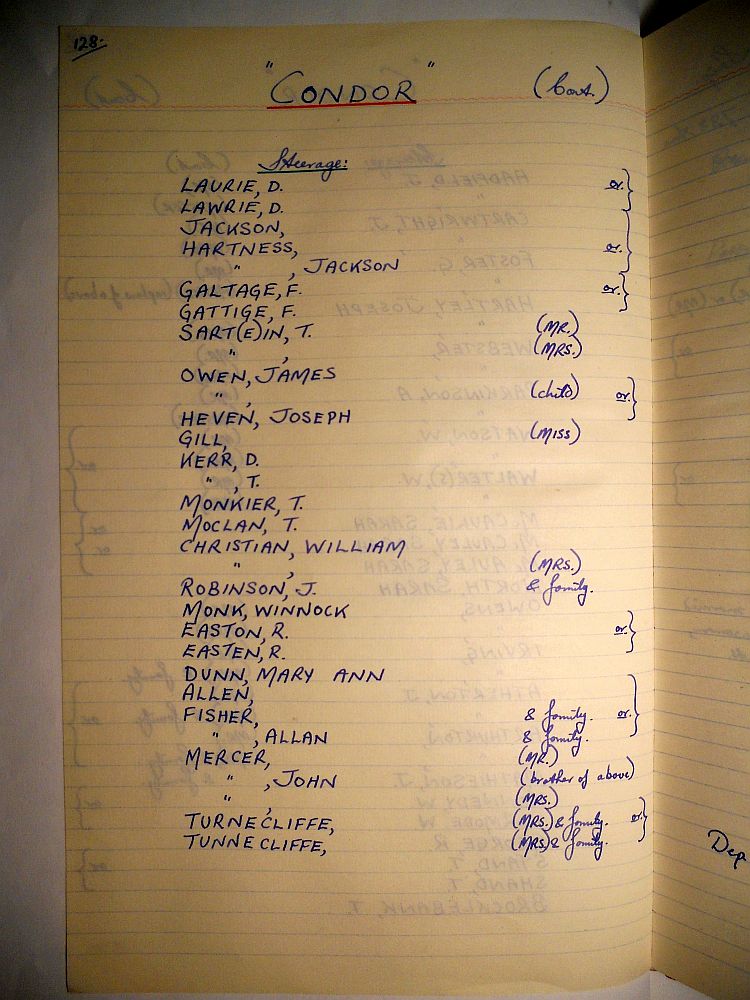 128.
"CONDOR" (Cont.)
Steerage:
LAURIE, D. or. }
LAWRIE, D.
JACKSON,
HARTNESS, or. }
" , JACKSON
GALTAGE, F. or. }
GATTIGE, F.
SART(E)IN, T. (MR.)
" , (MRS.)
OWEN, JAMES
" , (child) or. }
HEVEN, JOSEPH
GILL, (MISS)
KERR, D.
" , T.
MONKIER, T.
MOCLAN, T.
CHRISTIAN, WILLIAM
" , (MRS.)
ROBINSON, J. & family.
MONK, WINNOCK
EASTON, R. or. }
EASTEN, R.
DUNN, MARY ANN
ALLEN,
FISHER, & family. or. }
" , ALLAN & family.
MERCER, (MR.)
" , JOHN (brother of above)
" , (MRS.)
TURNECLIFFE, (MRS.) & family. or. }
TUNNECLIFFE, (MRS) & family.
Dep